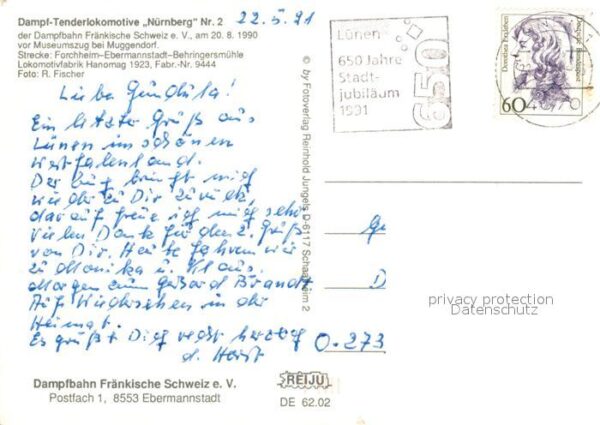 Dampf-Tenderlokomotive „Nürnberg" Nr. 2
der Dampfbahn Fränkische Schweiz e. V., am 20. 8. 1990
vor Museumszug bei Muggendorf.
Strecke: Forchheim–Ebermannstadt–Behringersmühle
Lokomotivfabrik Hanomag 1923, Fabr.-Nr. 9444
Foto: R. Fischer
22.5.91
Liebe Gundula!
Ein letzter Gruß aus
Lünen im schönen
Westfalenland.
Der Zug bringt mich
wieder zu Dir zurück,
darauf freue ich mich sehr
Vielen Dank für den 2. Gruß
von Dir. Heute fahren wir
zu Monika u. Klaus,
Morgen zum Brandt
Auf Wiedersehen in der
Heimat.
Es grüßt Dich recht herzlich
d. Horst
Dampfbahn Fränkische Schweiz e. V.
Postfach 1, 8553 Ebermannstadt
© by Fotoverlag Reinhold Jungels D-6117 Schaafheim 2
Lünen
650 Jahre
Stadt-
jubiläum
1991
650
Dorothea Erxleben
Deutsche Bundespost
60
D
O-273
privacy protection
Datenschutz
REIJU
DE 62.02